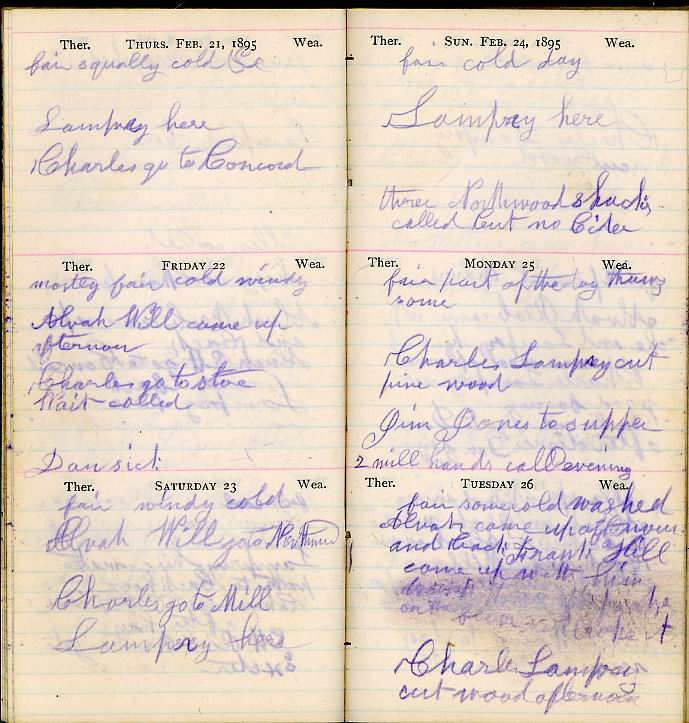 Ther. THURS. FEB. 21, 1895 Wea.
fair equally cold
Lamprey here
Charles go to Concord
Ther. FRIDAY 22 Wea.
mostly fair cold windy
Alvah Will came up
afternoon
Charles go to store
Wait called
Dan sick
Ther. SATURDAY 23 Wea.
fair windy cold
Alvah Will go to
Charles go to Mill
Lamprey here
Ther. SUN. FEB. 24, 1895 Wea.
fair cold day
Lamprey here
three Northwood
called but no Cider
Ther. MONDAY 25 Wea.
fair part of the day thaws
some
Charles Lamprey cut
pine wood
Jim Jones to supper
2 mill hands call evening
Ther. TUESDAY 26 Wea.
fair some cold washed
Alvah came up afternoon
and back Frank Hill
came up with him
on the
Charles Lamprey
cut wood afternoon